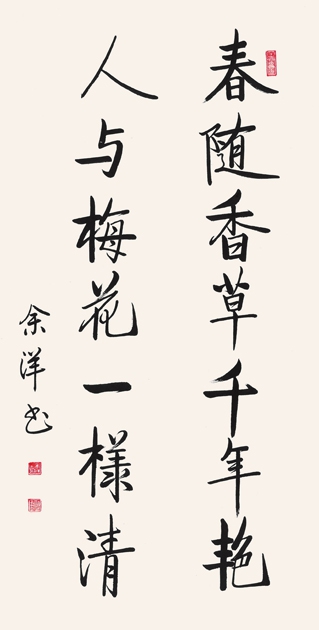 春随香草千年艳
人与梅花一樣清
余洋书